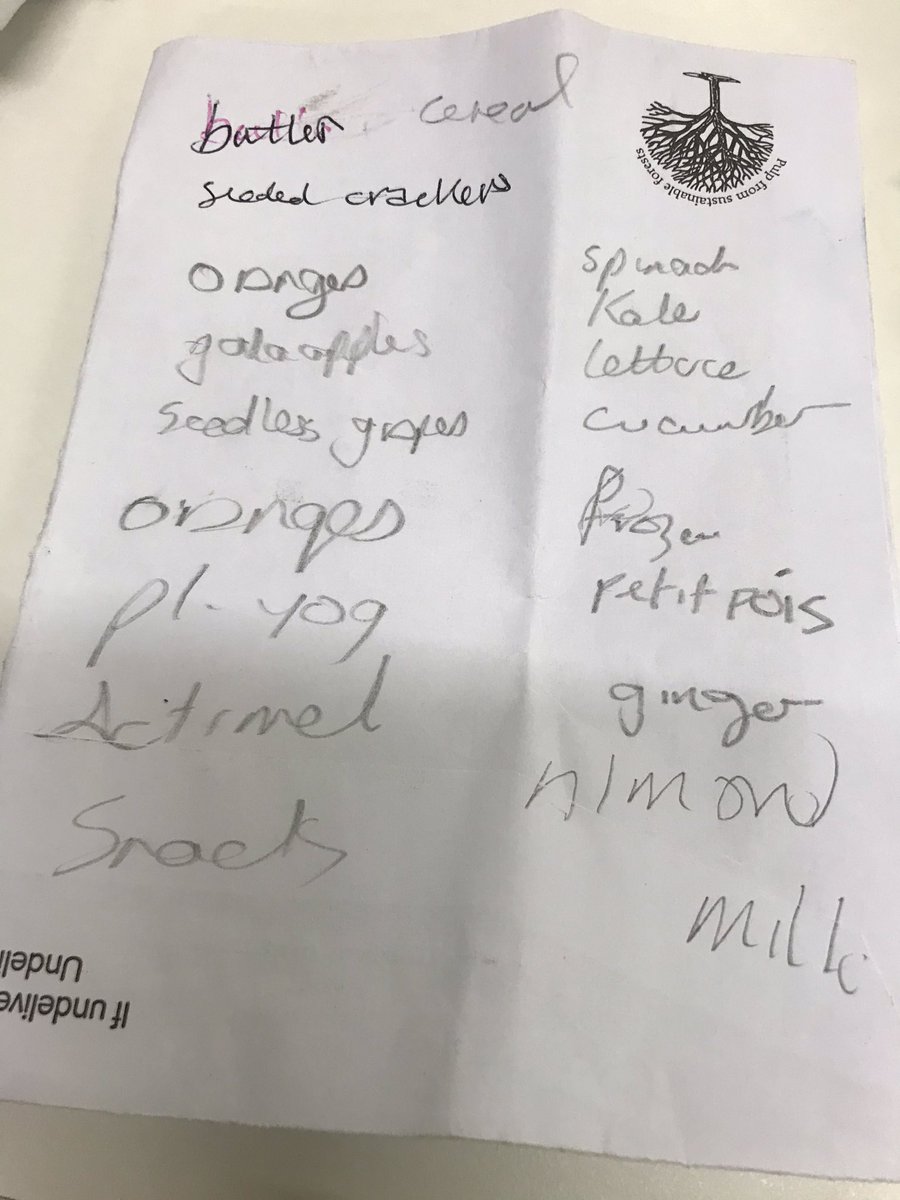 butter
cereal
seeded crackers
oranges
gala apples
seedless grapes
oranges
pl. yog
Actimel
Snacks
Pulp from sustainable forests
spinach
Kale
lettuce
cucumber
frozen
Petit POIS
ginger
Almond
Milk
Undeli
If undelive